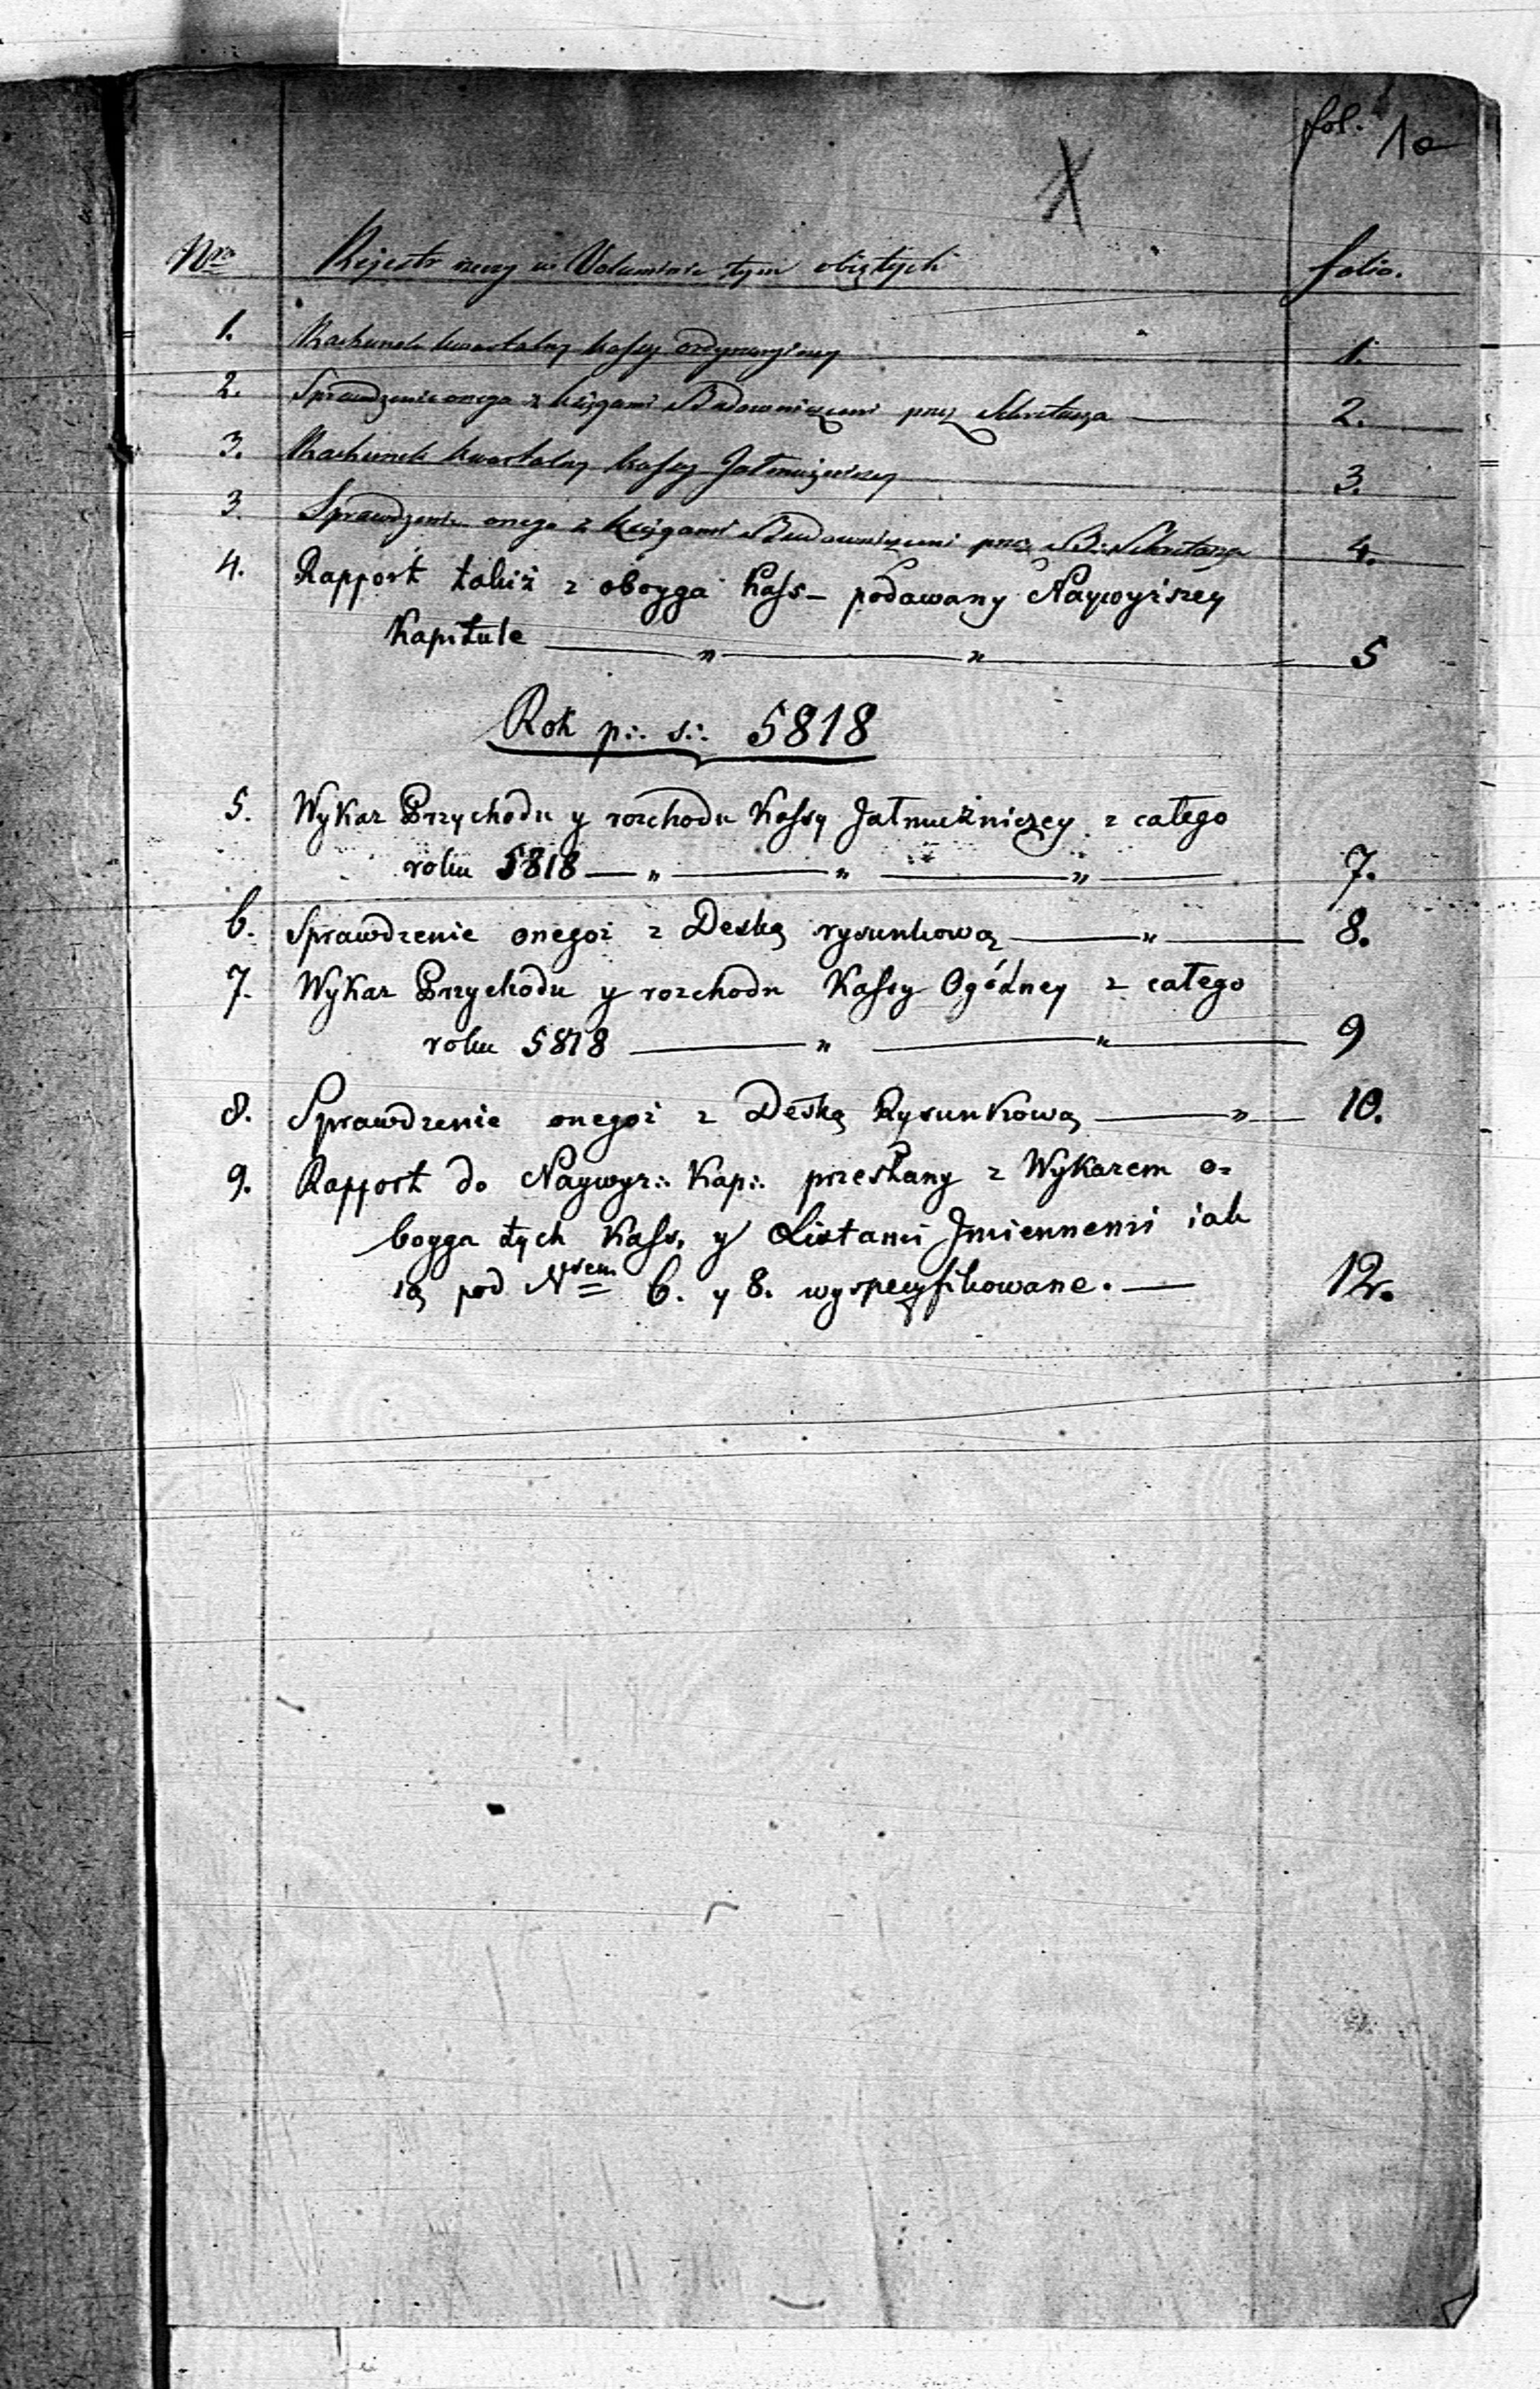 fol. 1a
Nro Rejestr rzeczy w Voluminie tym obiętych folio.
1. Rachunek kwartalny kassy ordynaryiney 1.
2. Sprawdzenie onego z księgami Budowniczemi przez Sekretarza 2.
3. Rachunek kwartalny kassy Jałmużniczey 3.
3. Sprawdzenie onego z księgami Budowniczemi przez B: Sekretarza 4.
4. Rapport takiż z oboyga Kass– podawany Naywyższey
Kapitule — „ — „ — 5
Rok p∴ s∴ 5818
5. Wykaz Przychodu y rozchodu Kassy Jałmużniczey z całego
roku 5818 — „ — „ — „ — 7.
6. Sprawdzenie onegoż z Deską rysunkową — „ — 8.
7. Wykaz Przychodu y rozchodu Kassy Ogólney z całego
roku 5818 — „ — „ — 9
8. Sprawdzenie onegoż z Deską Rysunkową — „ — 10.
9. Rapport do Naywyż∴ Kap∴ przesłany z Wykazem o=
boyga tych Kass, y Listami Jmiennemi iak
są pod Nrem 6. y 8. wyspecyfikowane. — 12.